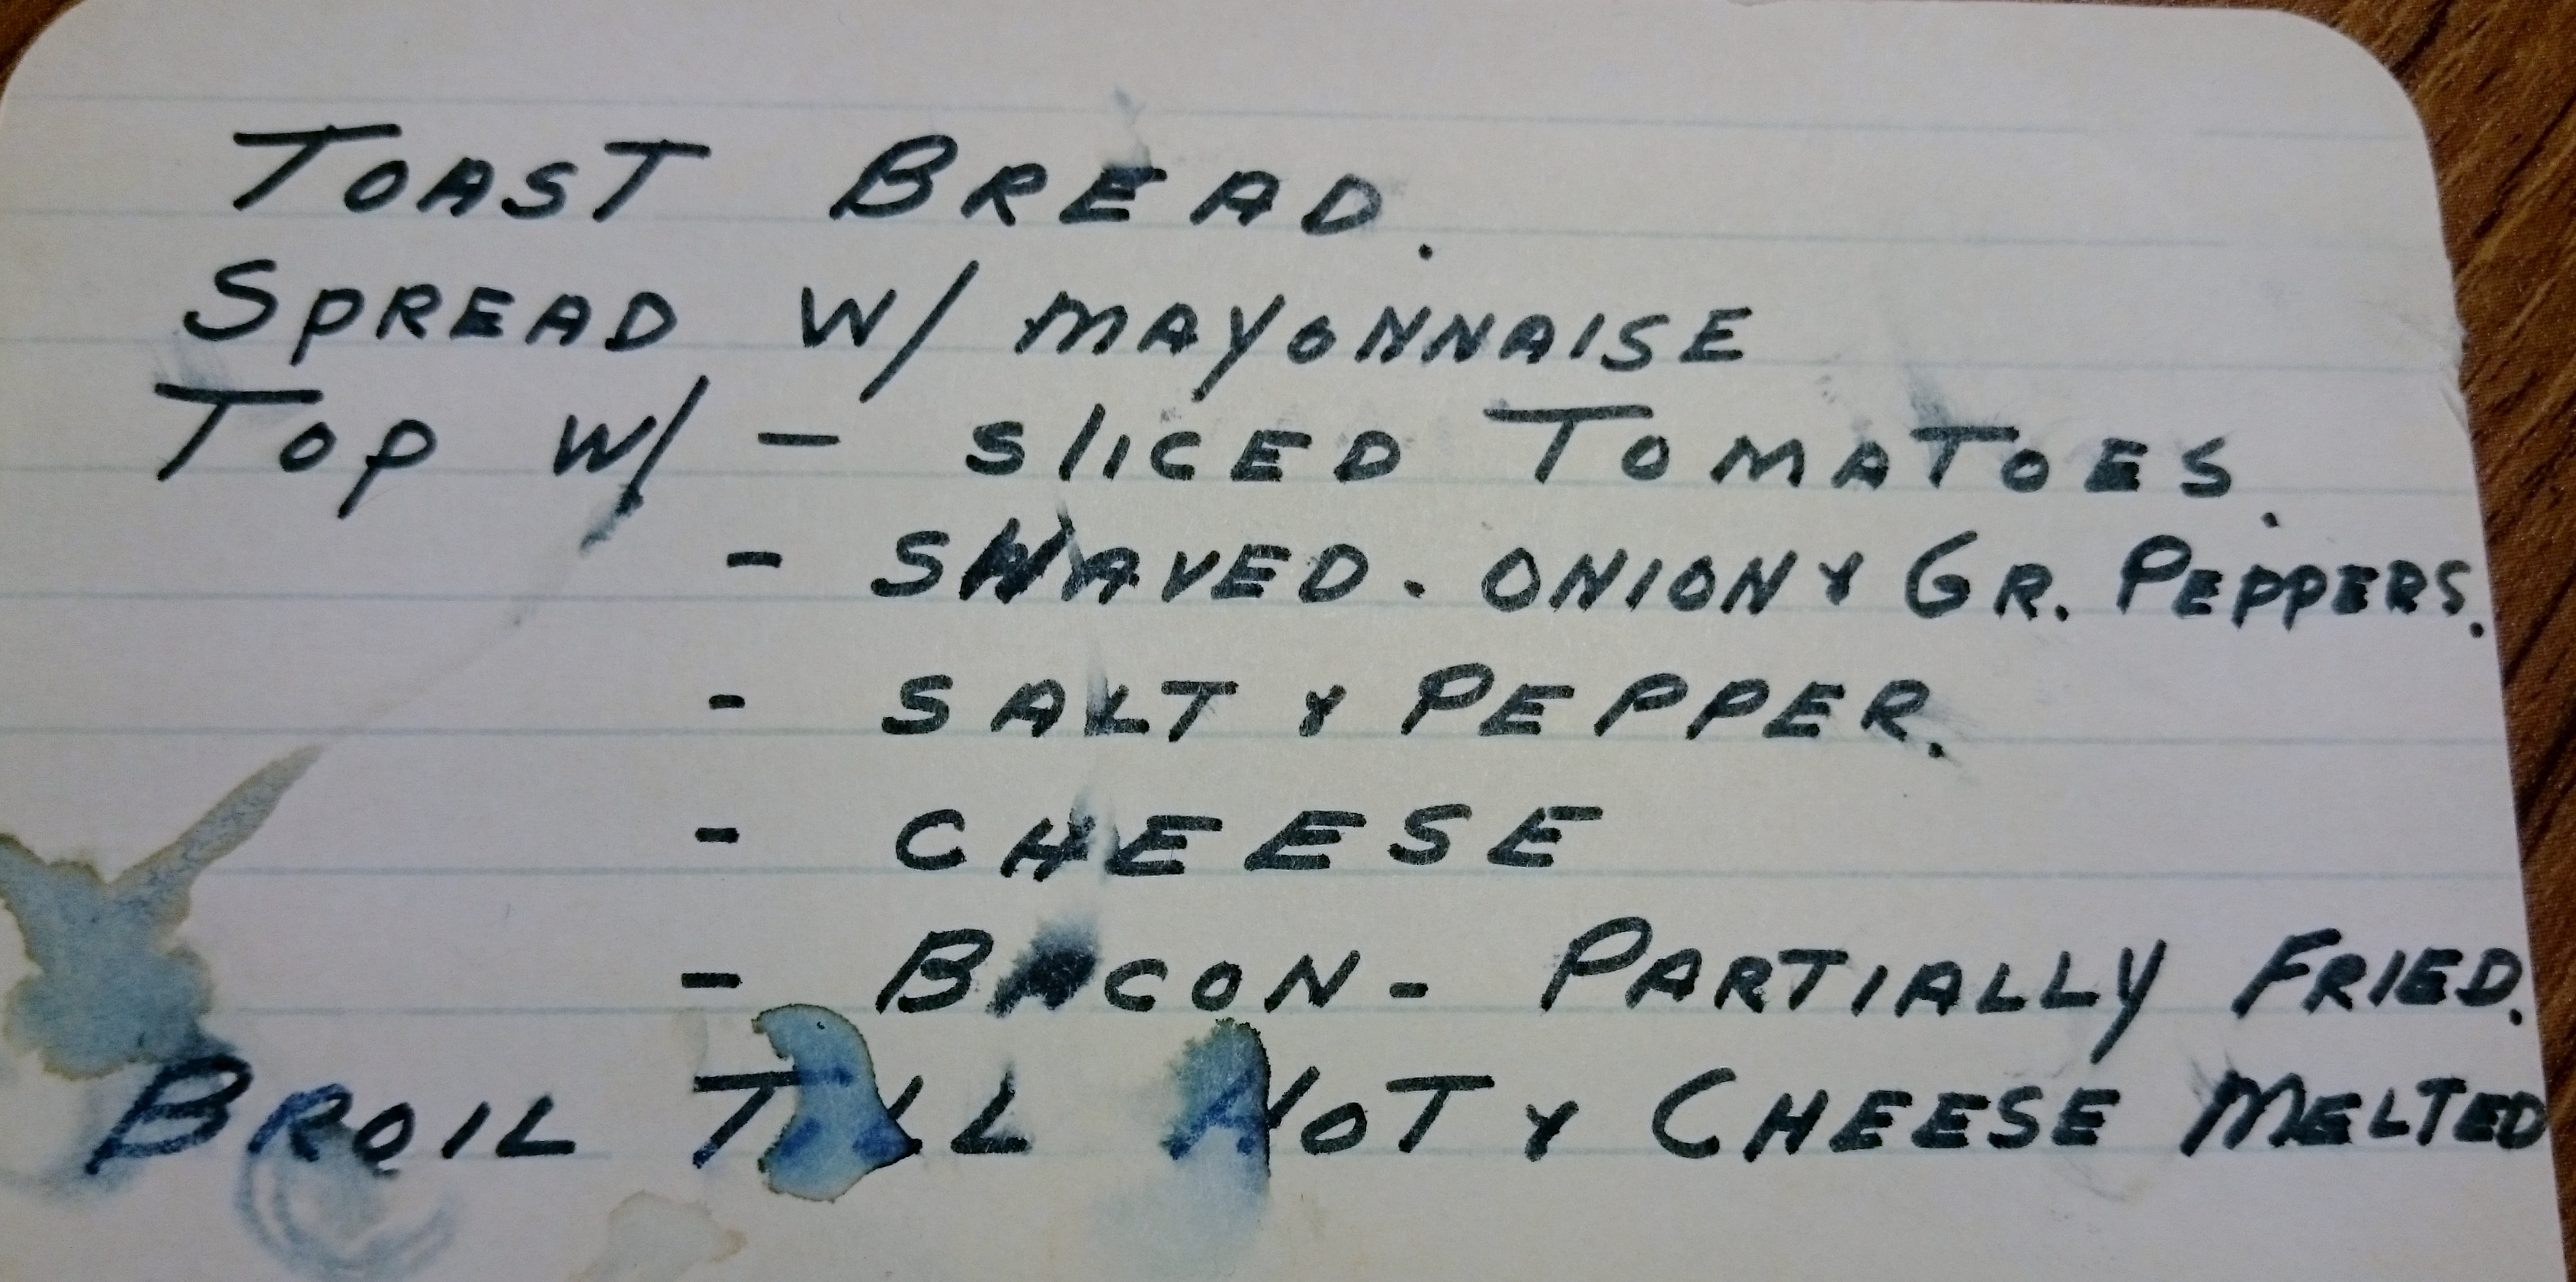 TOAST BREAD.
SPREAD W/ MAYONNAISE
TOP W/ - SLICED TOMATOES.
- SHAVED. ONION & GR. PEPPERS.
- SALT & PEPPER.
- CHEESE
- BACON - PARTIALLY FRIED.
BROIL TILL HOT & CHEESE MELTED